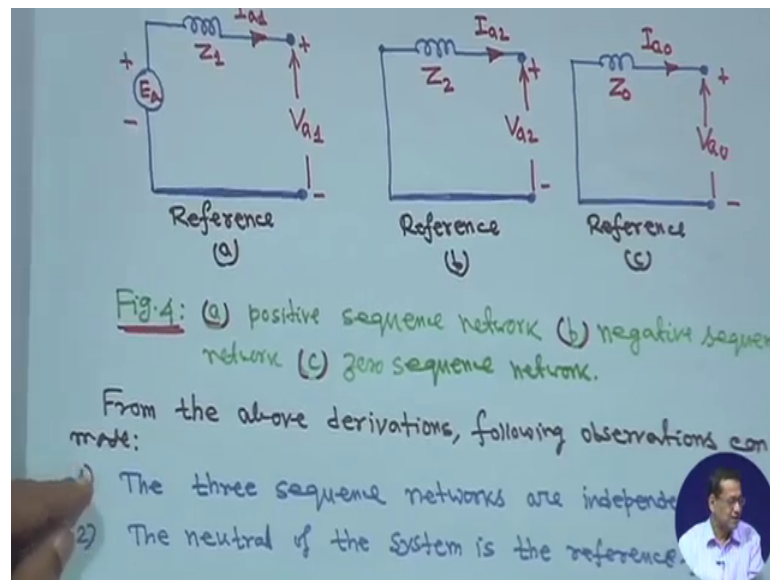 Ia1 Ia2 Ia0
+ Z1 + Z2 + Z0 +
EA Va1 Va2 Va0
- - - -
Reference Reference Reference
(a) (b) (c)
Fig.4: (a) positive sequence network (b) negative sequen
network (c) zero sequence network.
From the above derivations, following observations can
made:
1) The three sequence networks are independe
2) The neutral of the system is the reference.